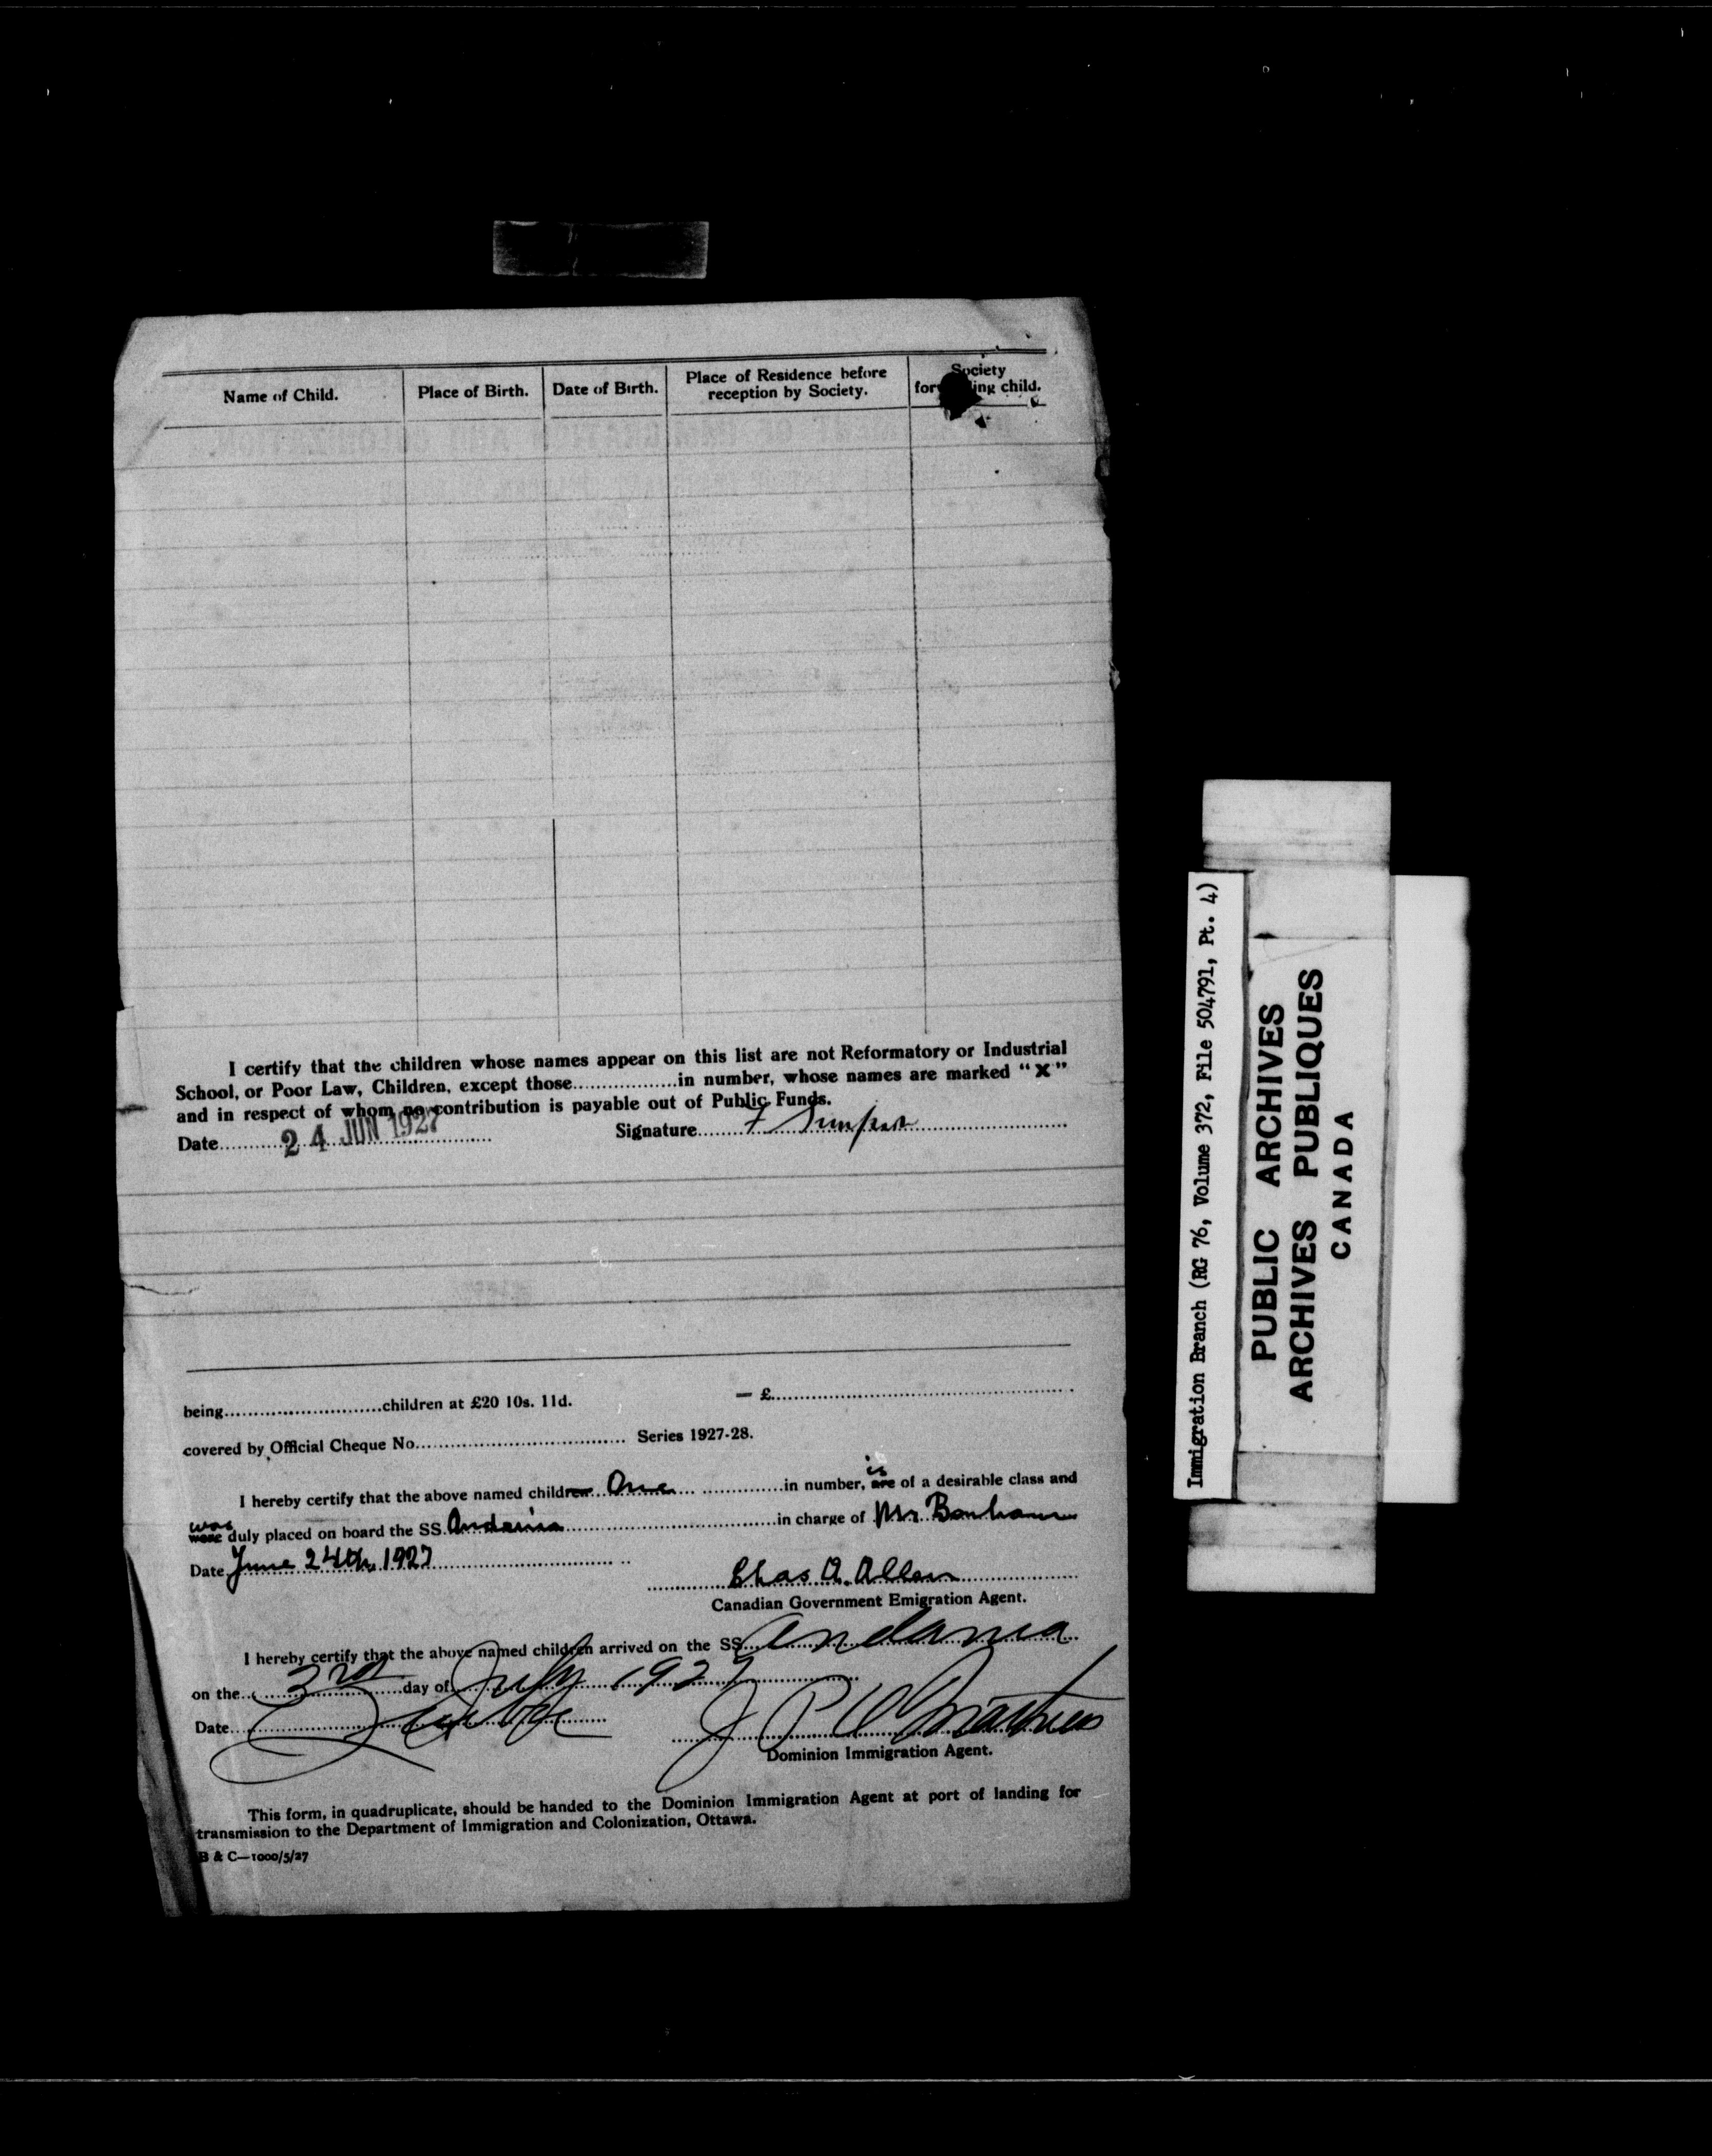 Name of Child.
Place of Birth.
Date of Birth.
Place of Residence before
reception by Society.
Society
for ing child.
I certify that the children whose names appear on this list are not Reformatory or Industrial
School, or Poor Law, Children, except those.................in number, whose names are marked "X"
and in respect of whom no contribution is payable out of Public Funds.
Date 24 JUN 1927 Signature F Simpson
being..........................children at £20 10s. 11d. — £..................................................
covered by Official Cheque No................................... Series 1927-28.
is
I hereby certify that the above named children One in number, are of a desirable class and
was
were duly placed on board the SS. Andania in charge of Mr. Bonham
Date June 24th, 1927
Chas A. Allen
Canadian Government Emigration Agent.
I hereby certify that the above named children arrived on the SS. Andania
on the 3rd day of July 1927
Date Quebec J P
Dominion Immigration Agent.
This form, in quadruplicate, should be handed to the Dominion Immigration Agent at port of landing for
transmission to the Department of Immigration and Colonization, Ottawa.
B & C—1000/5/27
Immigration Branch (RG 76, Volume 372, File 504791, Pt. 4)
PUBLIC ARCHIVES
ARCHIVES PUBLIQUES
CANADA